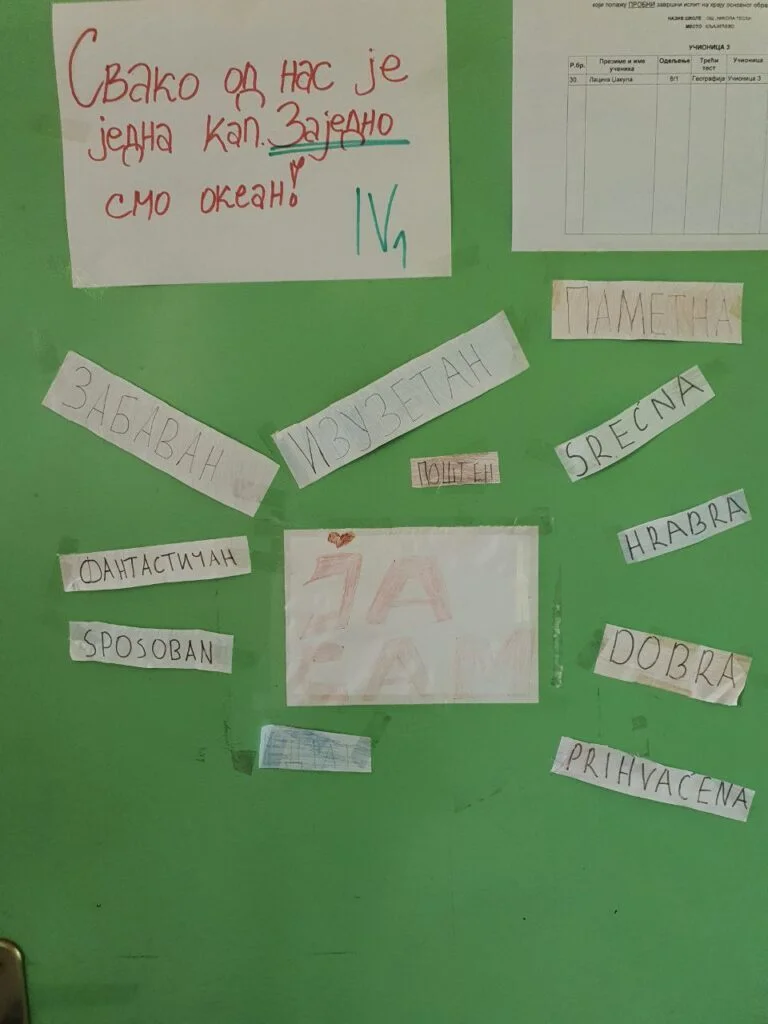 Свако од нас је
једна кап. Заједно
смо океан!
IV1
које полажу ПРОБНИ завршни испит на крају основног обра
НАЗИВ ШКОЛЕ ОШ „НИКОЛА ТЕСЛА
МЕСТО
УЧИОНИЦА 3
Р.бр. Презиме и име ученика Одељење Трећи тест Учионица
30. 8/1 Географија Учионица 3
ПАМЕТНА
ЗАБАВАН
ИЗУЗЕТАН
SREĆNA
ПОШТЕН
HRABRA
ФАНТАСТИЧАН
ЈА
САМ
SPOSOBAN
DOBRA
PRIHVAĆENA